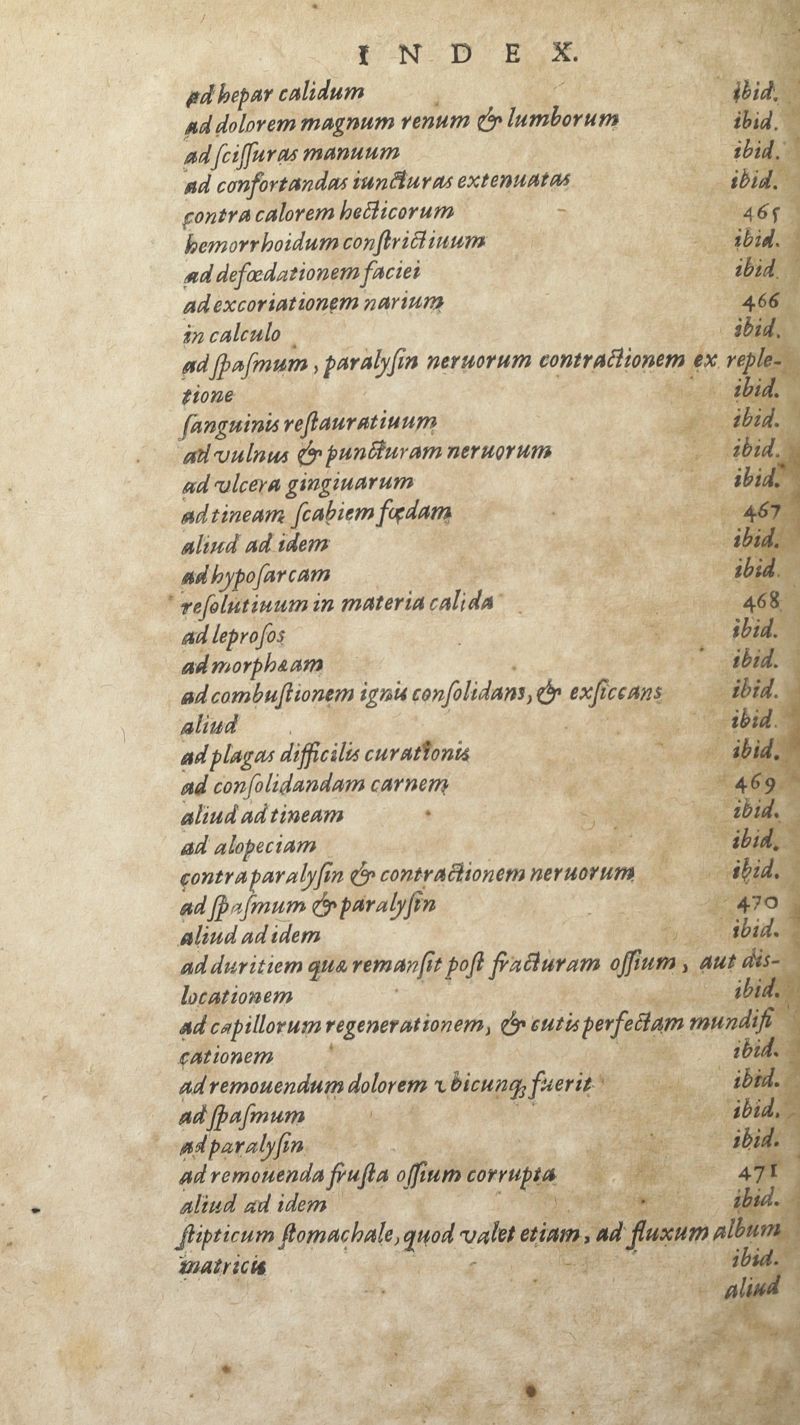 INDEX.
ad hepar calidum ibid.
ad dolorem magnum renum & lumborum ibid.
ad ſciſſuras manuum ibid.
ad confortandas iuncturas extenuatas ibid.
contra calorem hecticorum 465
hemorrhoidum conſtrictiuum ibid.
ad defœdationem faciei ibid.
ad excoriationem narium 466
in calculo ibid.
ad ſpaſmum, paralyſin neruorum contractionem ex reple-
tione ibid.
ſanguinis reſtauratiuum ibid.
ad vulnus & puncturam neruorum ibid.
ad vlcera gingiuarum ibid.
ad tineam ſcabiem fœdam 467
aliud ad idem ibid.
ad hypoſarcam ibid.
reſolutiuum in materia calida 468
ad leproſos ibid.
ad morphæam ibid.
ad combuſtionem ignis conſolidans, & exſiccans ibid.
aliud ibid.
ad plagas difficilis curationis ibid.
ad conſolidandam carnem 469
aliud ad tineam ibid.
ad alopeciam ibid.
contra paralyſin & contractionem neruorum ibid.
ad ſpaſmum & paralyſin 470
aliud ad idem ibid.
ad duritiem quæ remanſit poſt fracturam oſſium, aut dis-
locationem ibid.
ad capillorum regenerationem, & cutis perfectam mundifi
cationem ibid.
ad remouendum dolorem vbicunq; fuerit ibid.
ad ſpaſmum ibid.
ad paralyſin ibid.
ad remouenda fruſta oſſium corrupta 471
aliud ad idem ibid.
ſtipticum ſtomachale, quod valet etiam, ad fluxum album
matricis ibid.
aliud